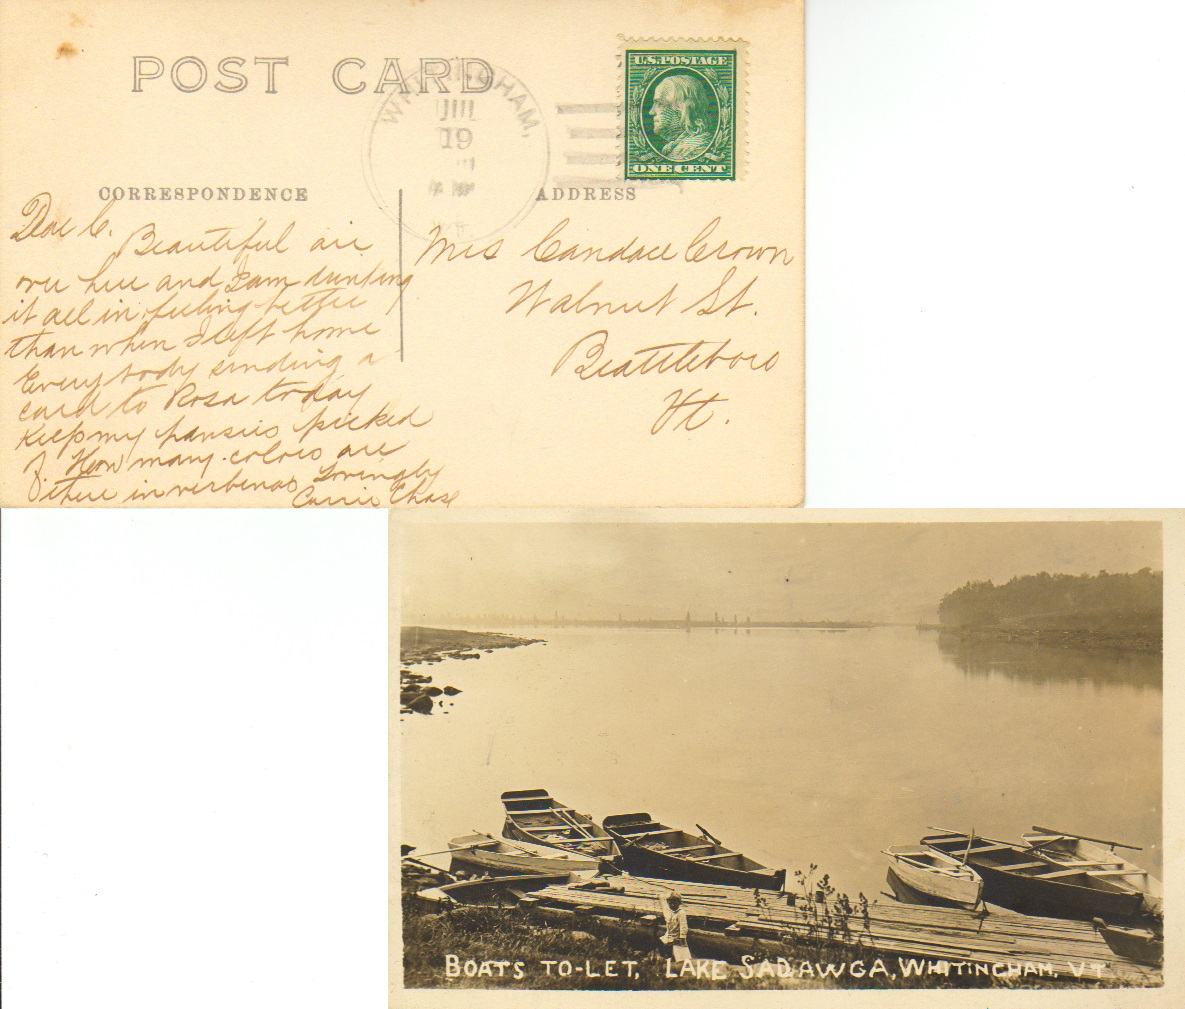 POST CARD
WHITINGHAM,
19
U.S. POSTAGE
ONE CENT
CORRESPONDENCE
ADDRESS
Dear C.
Beautiful air
over here and I am drinking
it all in, feeling better
than when I left home
Everybody sending a
card to Rosa today
Keep my pansies picked
off. How many colors are
there in verbenas Lovingly
Carrie Chase
Mrs Candace Crown
Walnut St.
Brattleboro
Vt.
BOATS TO-LET, LAKE SADAWGA, WHITINGHAM, VT